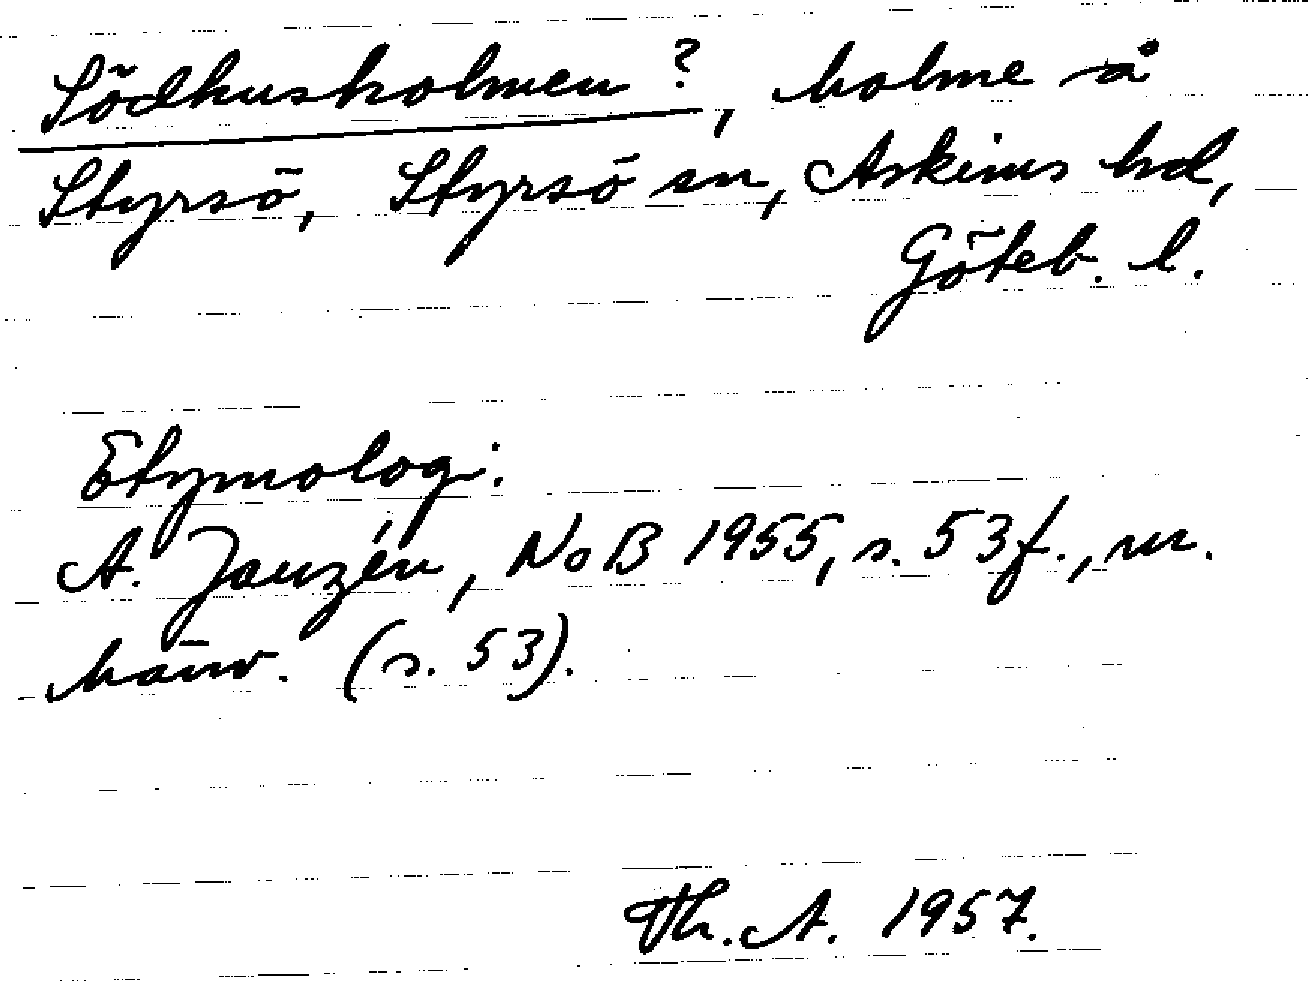 Södhusholmen ?, holme å
Styrsö, Styrsö sn, Askims hd,
Göteb. l.
Etymologi:
A. Janzén, NoB 1955, s. 53f., m.
hänv. (s. 53).
Th. A. 1957.